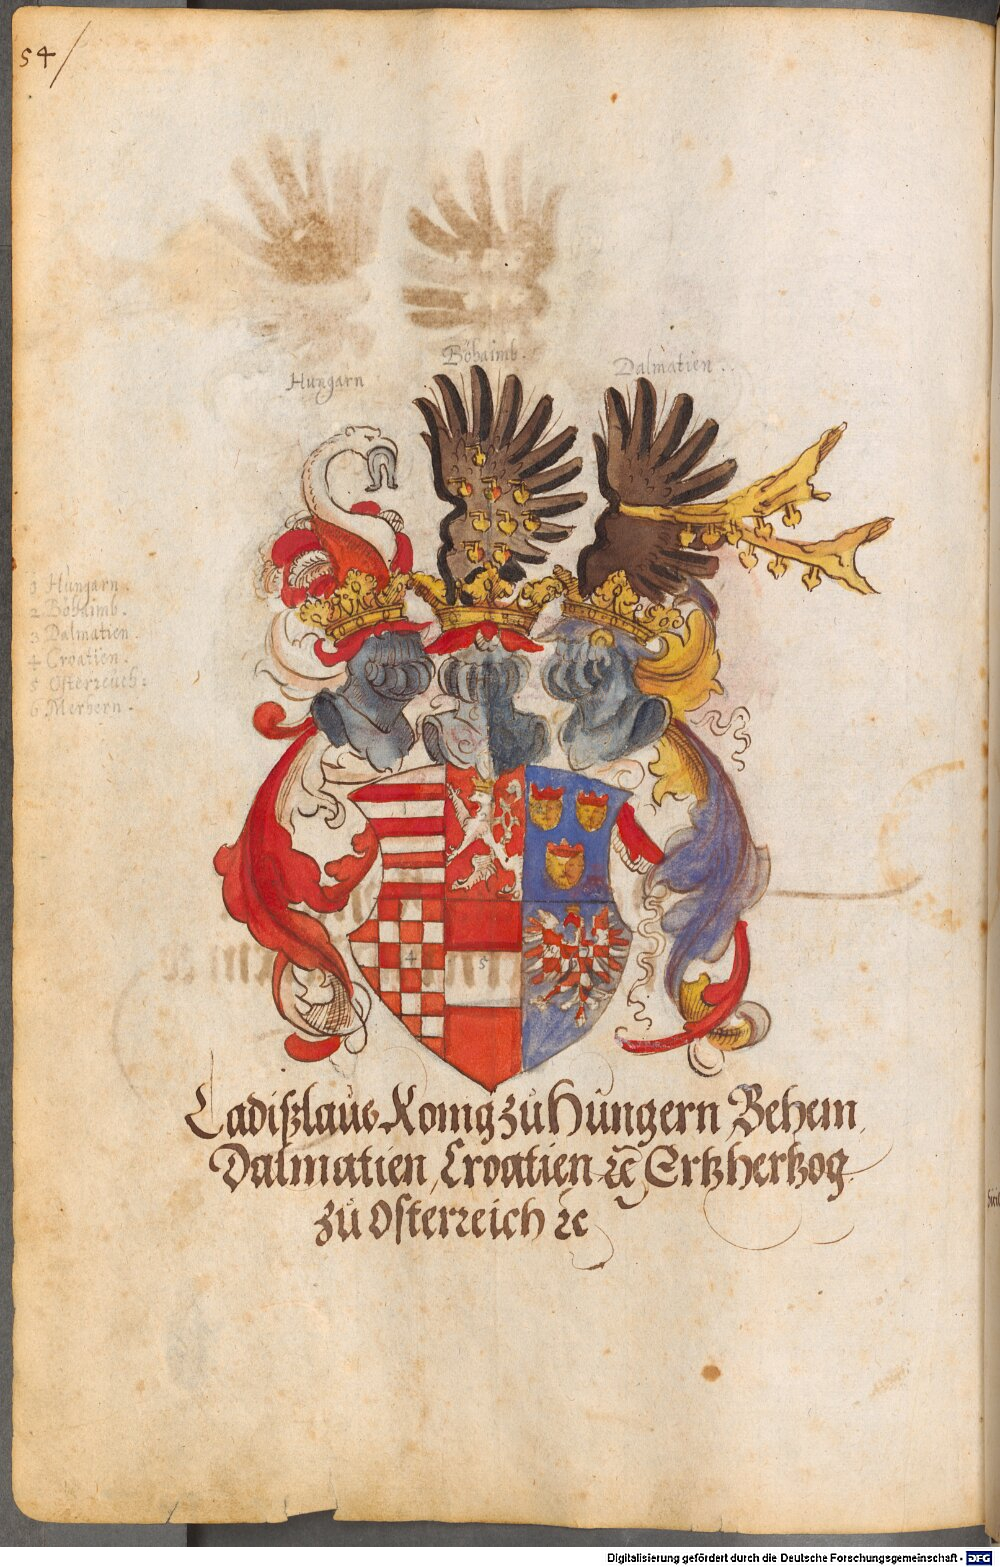 54
Böhaimb.
Hungarn
Dalmatien.
1 Hungarn.
2 Böhaimb.
3 Dalmatien.
4 Croatien.
5 Osterreich:
6 Merhern.
4
5
Ladißlaus Konig zů Hungern, Behem,
Dalmatien, Croatien ꝛc̃ Ertzhertzog
zů Osterreich ꝛc
Digitalisierung gefördert durch die Deutsche Forschungsgemeinschaft - DFG